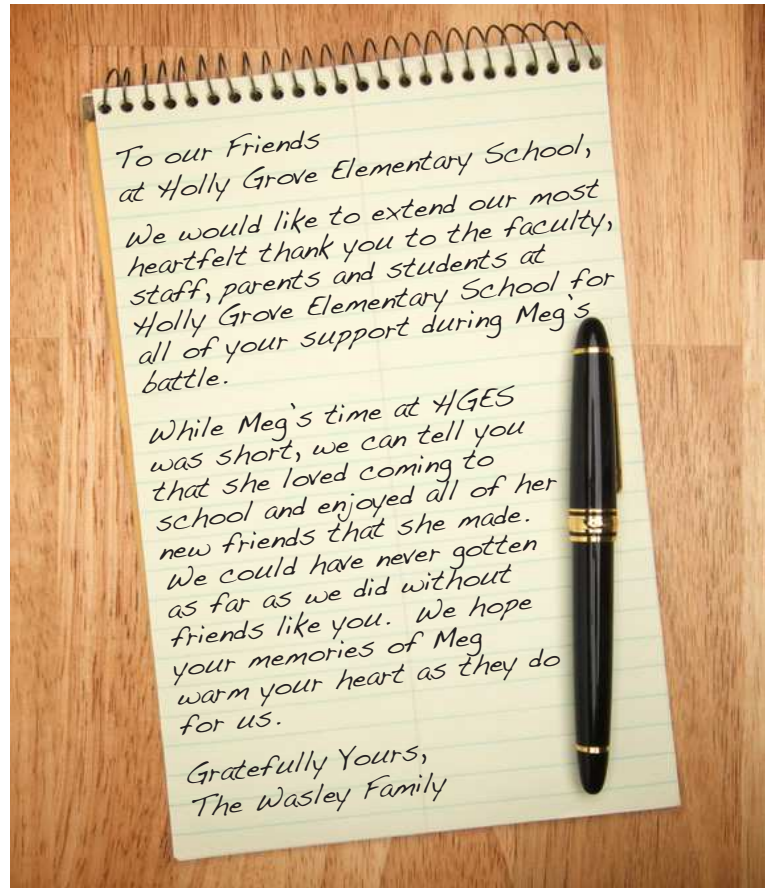 To our Friends
at Holly Grove Elementary School,
We would like to extend our most
heartfelt thank you to the faculty,
staff, parents and students at
Holly Grove Elementary School for
all of your support during Meg's
battle.
While Meg's time at HGES
was short, we can tell you
that she loved coming to
school and enjoyed all of her
new friends that she made.
We could have never gotten
as far as we did without
friends like you. We hope
your memories of Meg
warm your heart as they do
for us.
Gratefully Yours,
The Wasley Family